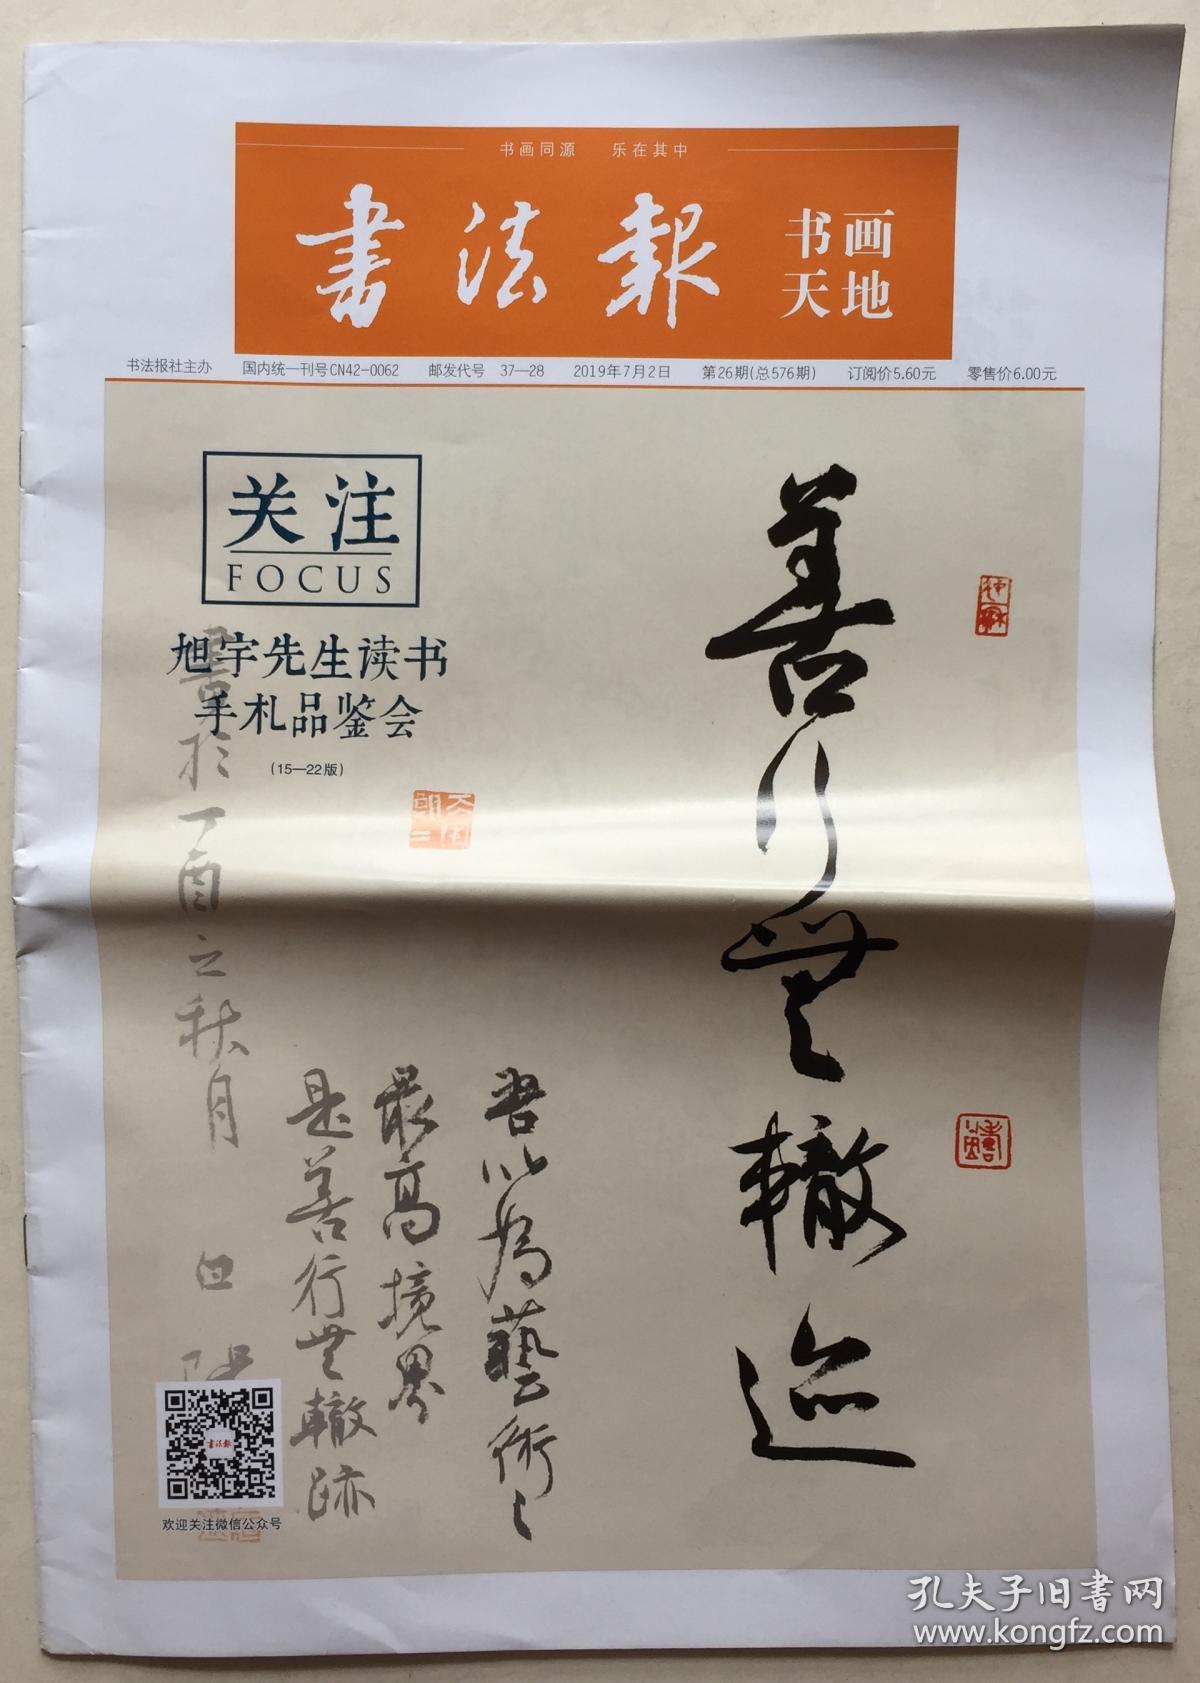 书画同源 乐在其中
書法報
书画
天地
书法报社主办 国内统一刊号CN42-0062 邮发代号 37—28 2019年7月2日 第26期(总576期) 订阅价5.60元 零售价6.00元
关注
FOCUS
旭宇先生读书
手札品鉴会
(15—22版)
善行無轍迹
吾以為藝術之
最高境界
是善行無轍跡
書於丁酉之秋月
書法報
欢迎关注微信公众号
孔夫子旧书网
www.kongfz.com